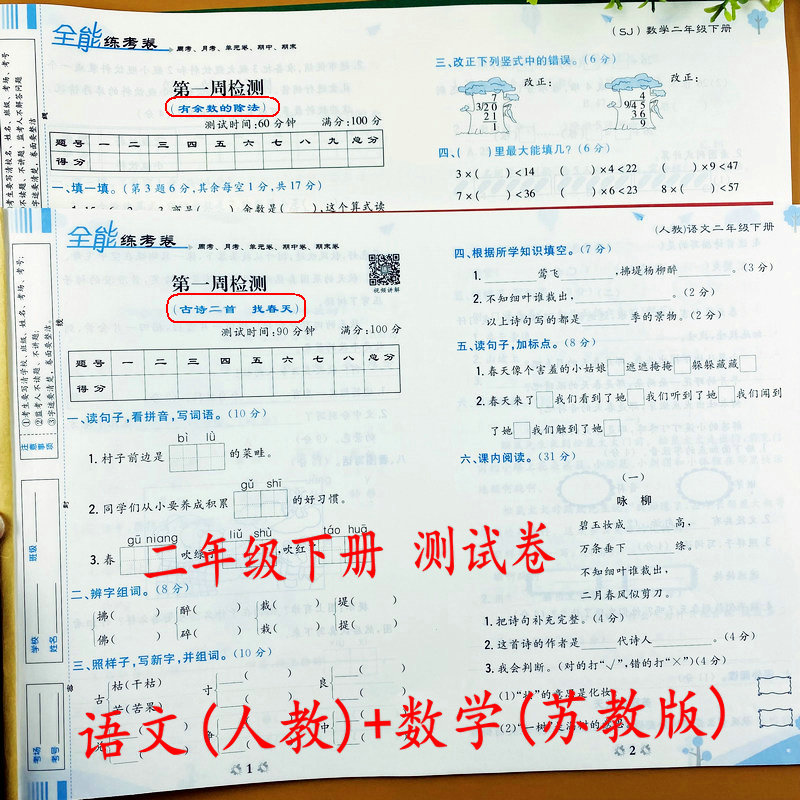 全能练考卷
周考、月考、单元卷、期中、期末
第一周检测
(有余数的除法)
测试时间:60分钟 满分:100分
题号 一 二 三 四 五 六 七 八 九 总分
得分
一、填一填。(第3题6分,其余每空1分,共17分)
(SJ) 数学二年级下册
三、改正下列竖式中的错误。(6分)
改正: 改正:
7
3/20
21
1
4
9/45
36
9
四、( )里最大能填几?(6分)
3×( )<14 ( )×4<22 ( )×9<47
7×( )<36 ( )×6<23 8×( )<57
全能练考卷
周考、月考、单元卷、期中卷、期末卷
视频讲解
第一周检测
(古诗二首 找春天)
测试时间:90分钟 满分:100分
题号 一 二 三 四 五 六 七 八 总分
得分
一、读句子,看拼音,写词语。(10分)
bì lǜ
1.村子前边是 的菜畦。
gǔ shī
2.同学们从小要养成积累 的好习惯。
gū niang liǔ shù táo huā
3.春 吹绿 吹红
二、辨字组词。(8分)
拂( ) 醉( ) 栽( ) 堤( )
佛( ) 碎( ) 裁( ) 提( )
三、照样子,写新字,并组词。(10分)
古 枯(干枯) 寸 良
苦(苦果) 中
1
(人教)语文二年级下册
四、根据所学知识填空。(7分)
1. 莺飞 ,拂堤杨柳醉 。(3分)
2.不知细叶谁裁出, 。
以上诗句写的都是 季的景物。(2分)
五、读句子,加标点。(8分)
1.春天像个害羞的小姑娘 遮遮掩掩 躲躲藏藏
2.春天来了 我们看到了她 我们听到了她 我们闻到
了她 我们触到了她
六、课内阅读。(31分)
(一)
咏 柳
碧玉妆成 高,
万条垂下 绦。
不知细叶谁裁出,
二月春风似剪刀。
1.把诗句补充完整。(4分)
2.这首诗的作者是 代诗人 。(4分)
3.我会判断。(对的打“√”,错的打“×”)(4分)
2
注意事项
①考生要写清学校、班级、姓名、考场、考号。
②监考人不读题、不讲题。
③字迹要清楚,卷面要整洁。
学校 班级
姓名
考场
考号
二年级下册 测试卷
语文(人教)+数学(苏教版)